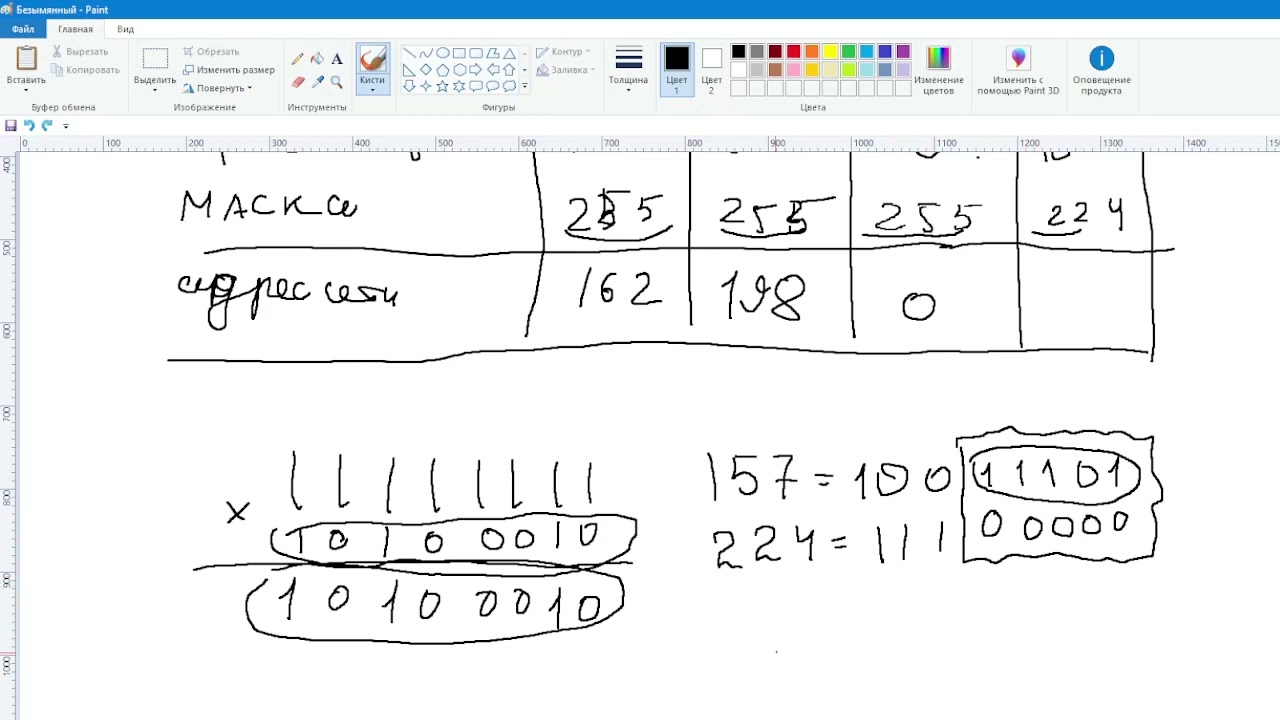 Безымянный - Paint
Файл Главная Вид
Вставить Вырезать Копировать
Буфер обмена
Выделить Обрезать Изменить размер Повернуть
Изображение
A
Инструменты
Кисти
Контур Заливка
Фигуры
Толщина
Цвет 1
Цвет 2
Изменение цветов
Цвета
Изменить с помощью Paint 3D
Оповещение продукта
0 100 200 300 400 500 600 700 800 900 1000 1100 1200 1300 1400
400 500 600 700 800 900 1000
маска 255 255 255 224
адрес сети 162 198 0
11111111
x 10100010
10100010
157 = 100 11101
224 = 111 00000